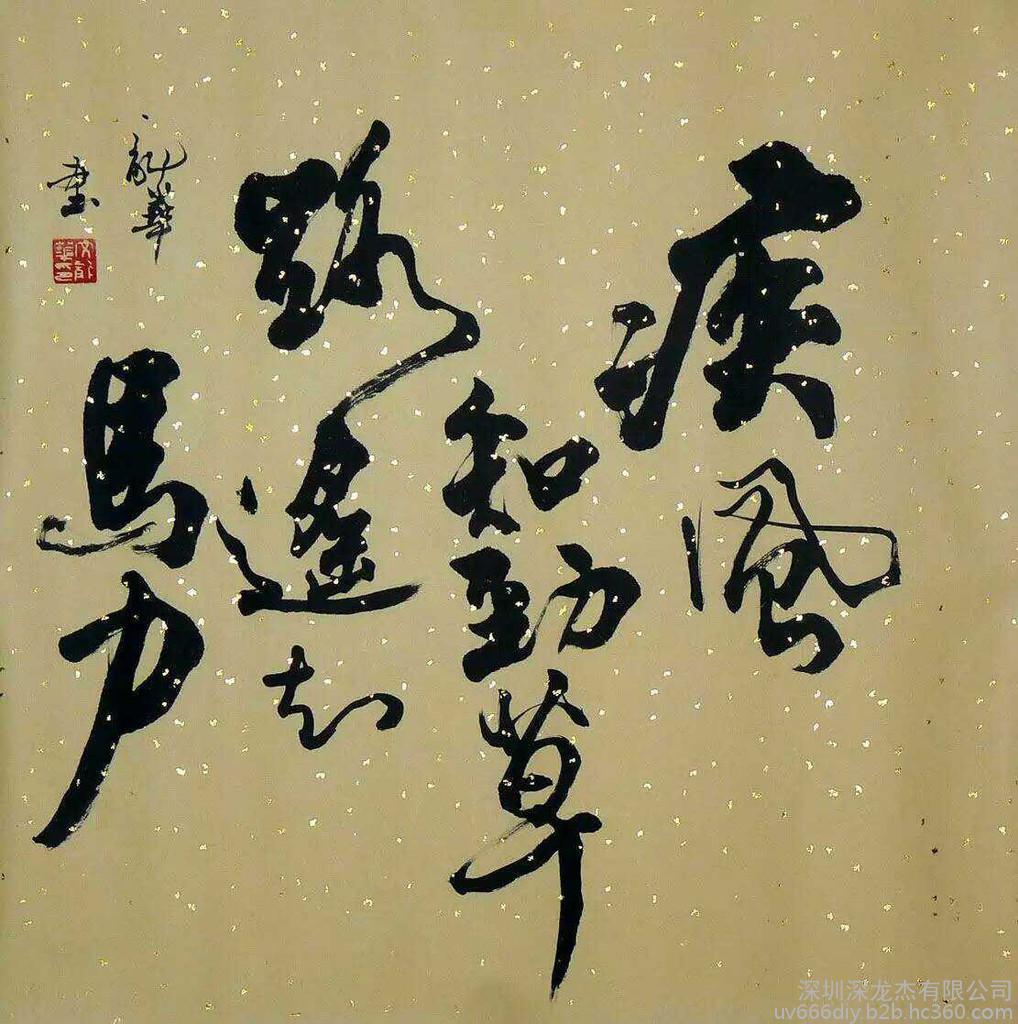 疾風
知勁草
路遙知
馬力
龍華
書
深圳深龙杰有限公司
uv666diy.b2b.hc360.com